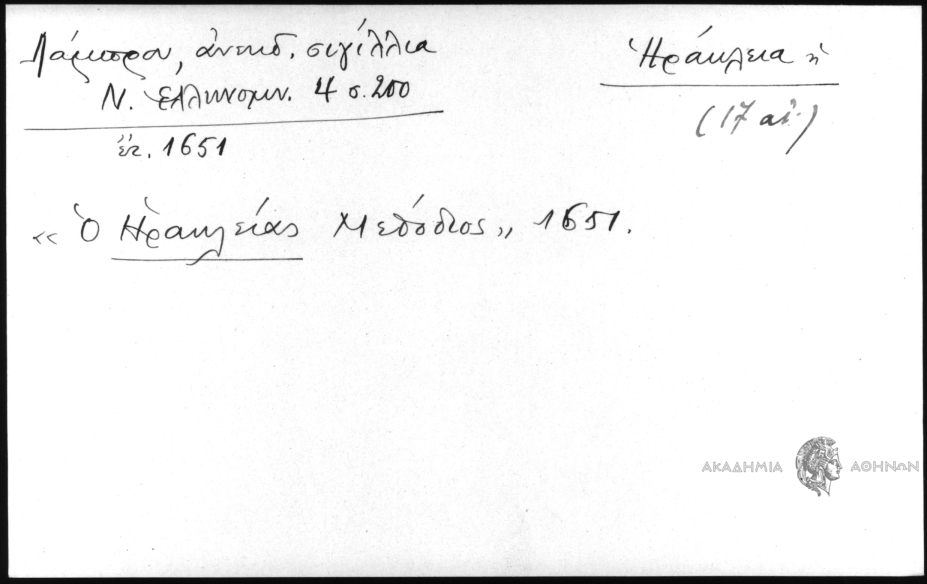 Λάμπρου, ἀνεκδ. σιγίλλια
Ν. Ἑλληνομν. 4 σ. 200
ἔτ. 1651
Ἡράκλεια ἡ
(17 αἰ.)
« Ὁ Ἡρακλείας Μεθόδιος,, 1651.
ΑΚΑΔΗΜΙΑ ΑΘΗΝΩΝ